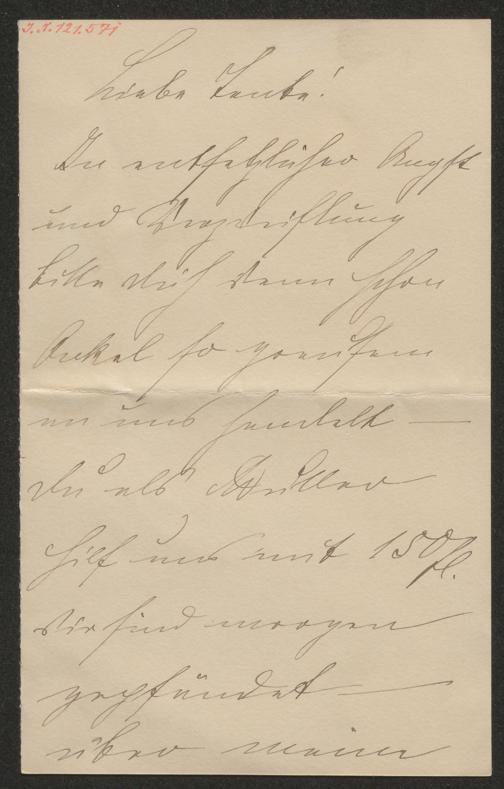 I.N.121.571
Liebe Tante!
In entsetzlicher Angst
und Verzweiflung
bitte dich wenn schon
Onkel so grausam
an uns handelt —
du als Mutter
hilf uns mit 150 fl.
Wir sind morgen
gepfändet —
über meine